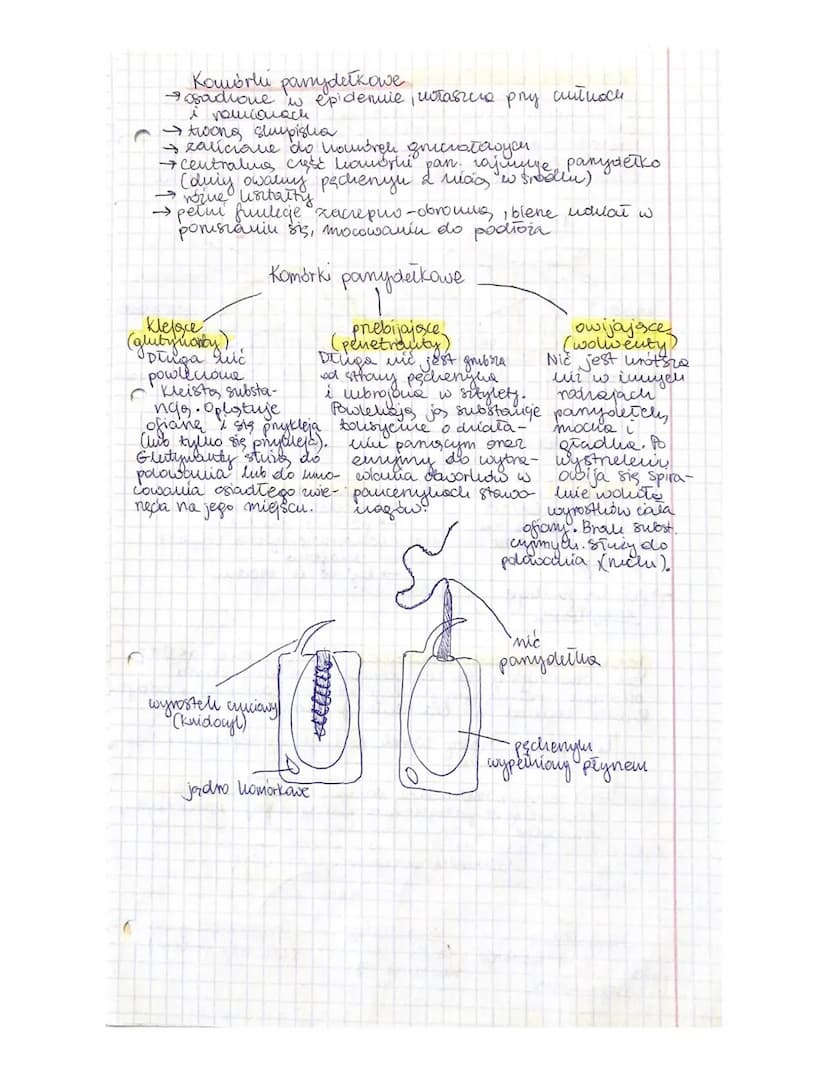 Komórki parzydełkowe
→ osadzone w epidermie, zwłaszcza przy czułkach
i ramionach
→ tworzą skupiska
→ zaliczane do komórek zmysłowych
→ centralną część komórki parz. zajmuje parzydełko
(duży owalny pęcherzyk z nicią w środku)
→ różne kształty
→ pełni funkcję zaczepno-obronną, bierze udział w
poruszaniu się, mocowaniu do podłoża
Komórki parzydełkowe
klejące
(glutynanty)
Długa nić
powleczona
kleistą substa-
ncją. Oplątuje
ofiarę i się przykleja
(lub tylko się przykleja).
Glutynanty służą do
polowania lub do umo-
cowania osiadłego zwie-
rzęcia na jego miejscu.
przebijające
(penetranty)
Długa nić jest grubsza
od strony pęcherzyka
i uzbrojona w sztylety.
Powlekają ją substancje
toksyczne o działa-
niu parzącym oraz
enzymy do wytra-
wiania otworków w
pancerzykach stawo-
nogów.
owijające
(wolwenty)
Nić jest krótsza
niż w innych
rodzajach
parzydełek,
mocna i
gładka. Po
wystrzeleniu
owija się spira-
lnie wokół
wyrostków ciała
ofiary. Brak subst.
czynnych. Służy do
polowania (ruchu).
nić
parzydełka
wyrostek czuciowy
(knidocyl)
pęcherzyk
wypełniony płynem
jądro komórkowe